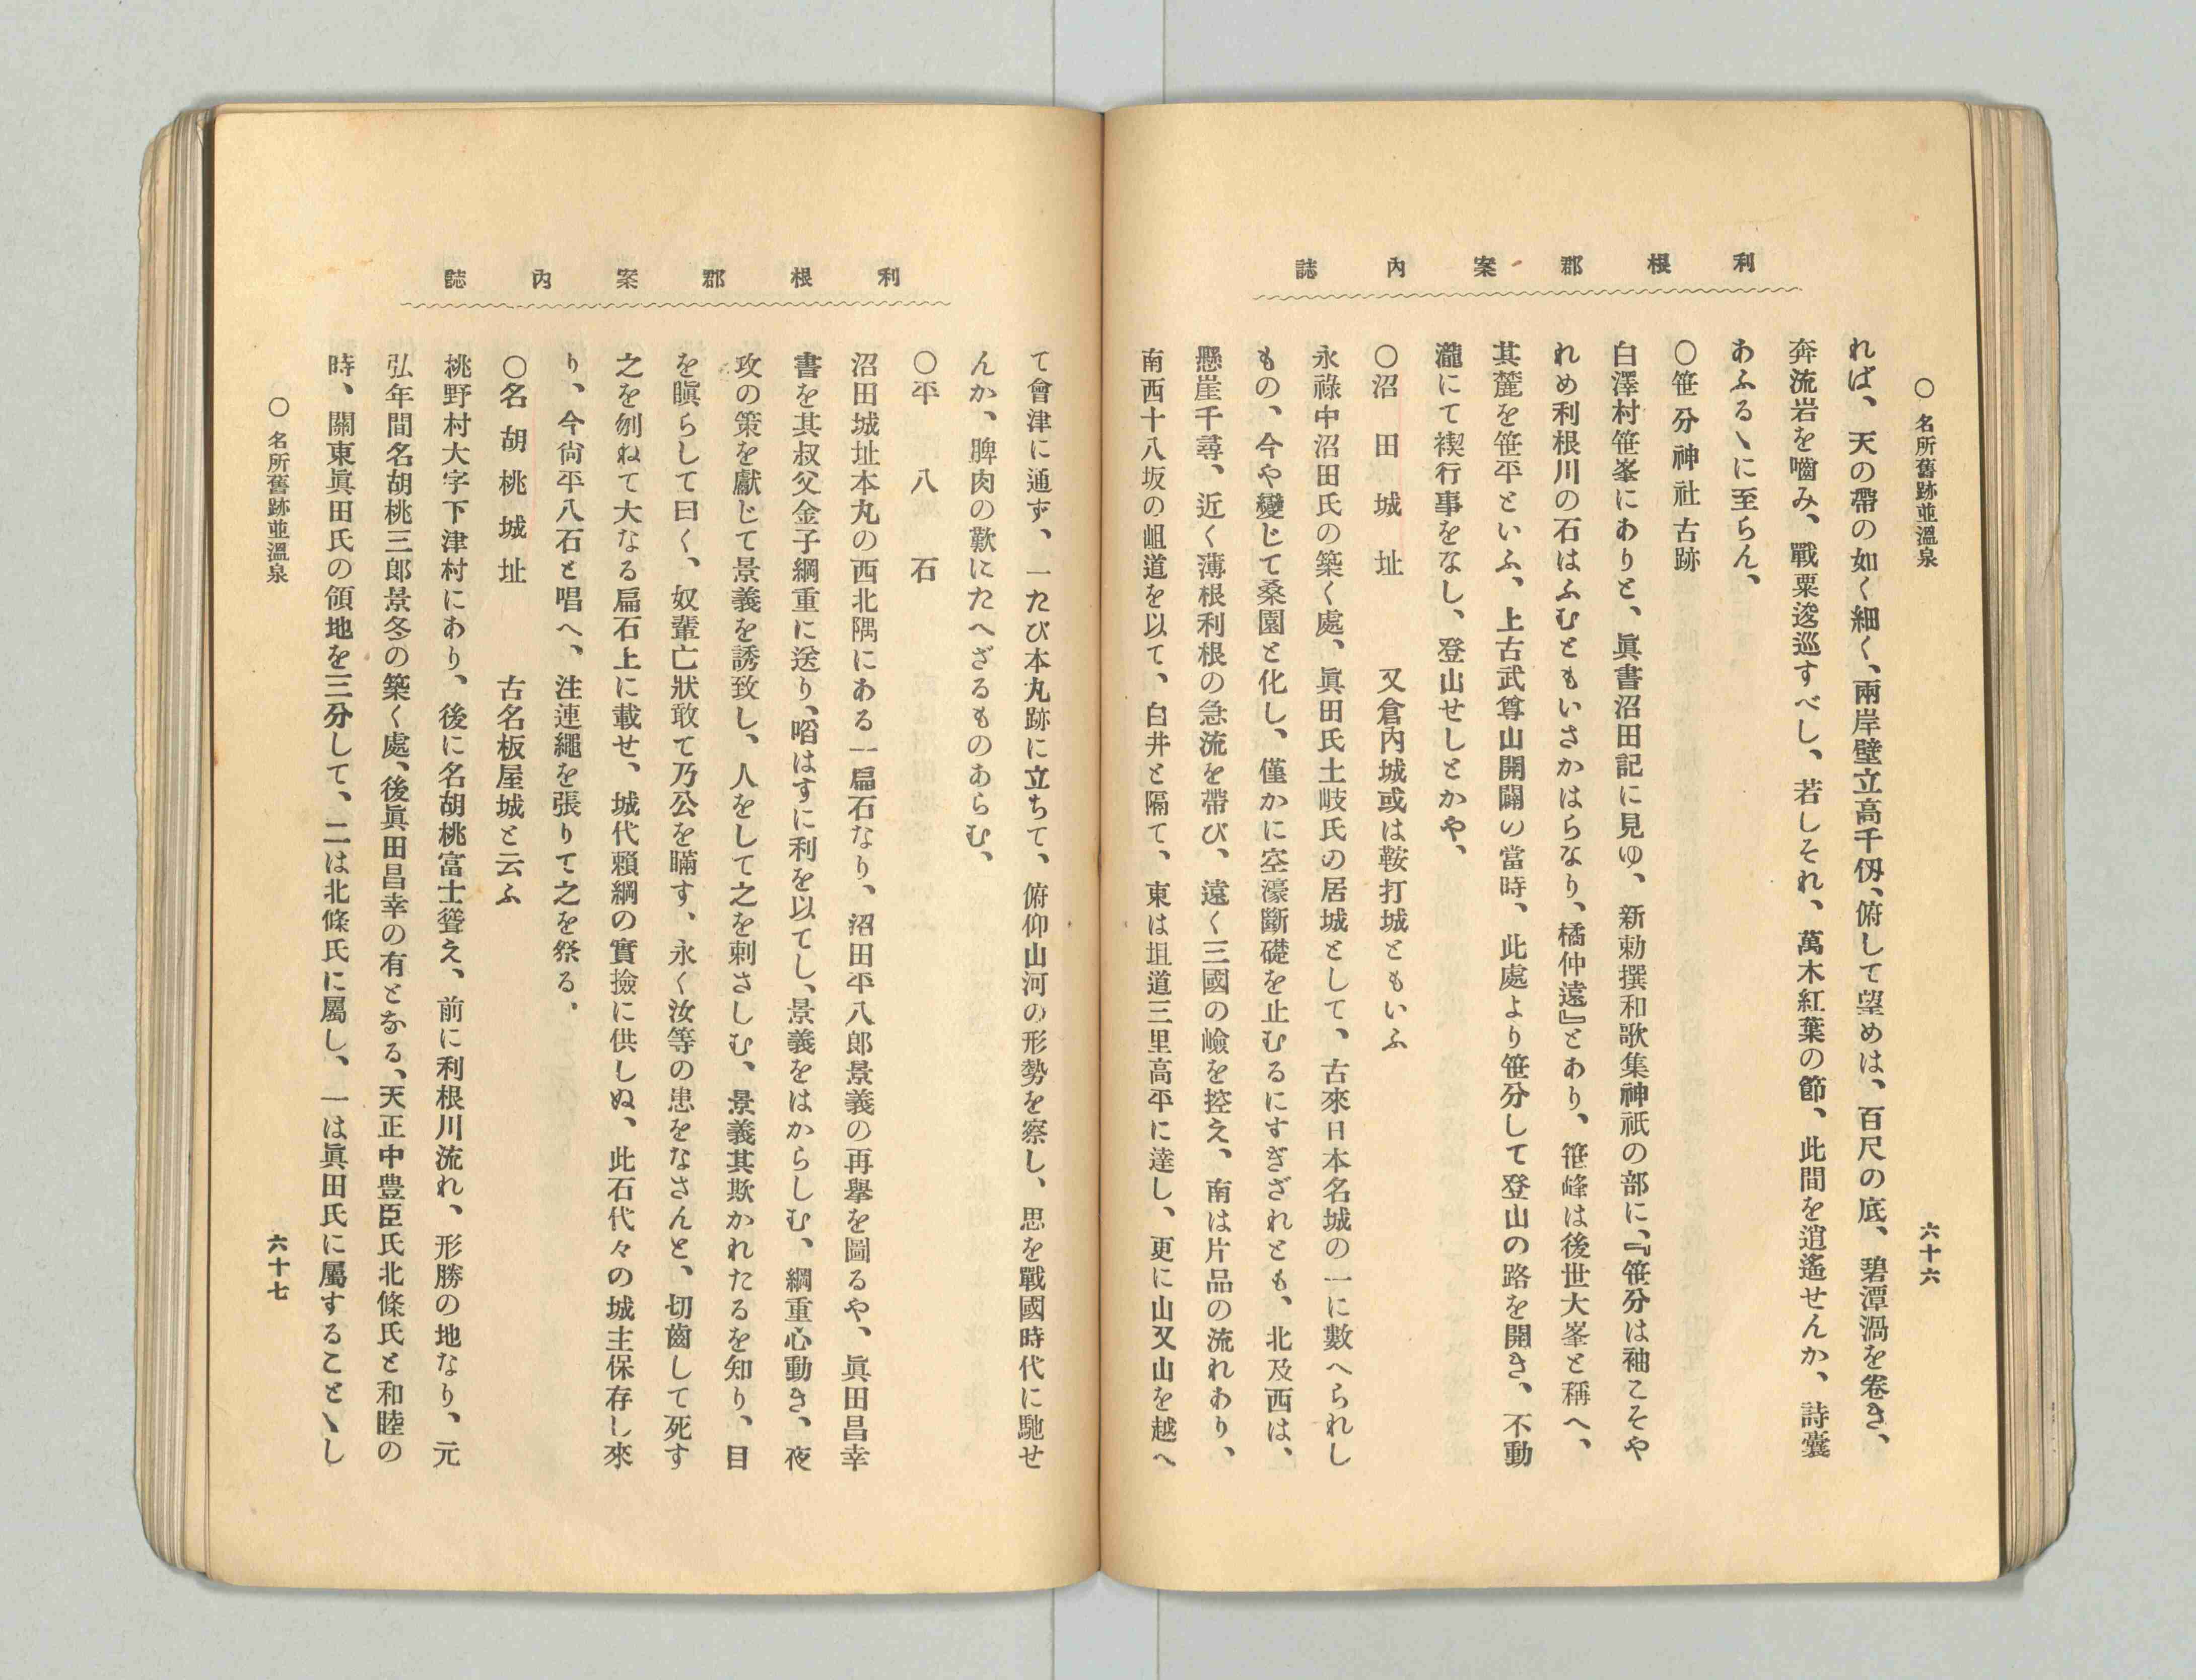 利根郡案内誌
○名所舊跡並溫泉
六十六
れば、天の帶の如く細く、兩岸壁立高千仭、俯して望めは、百尺の底、碧潭渦を卷き、
奔流岩を嚙み、戰粟逡巡すべし、若しそれ、萬木紅葉の節、此間を逍遙せんか、詩囊
あふるヽに至らん、
○笹分神社古跡
白澤村笹峯にありと、眞書沼田記に見ゆ、新勅撰和歌集神祇の部に、『笹分は袖こそや
れめ利根川の石はふむともいさかはらなり、橘仲遠』とあり、笹峰は後世大峯と稱へ、
其麓を笹平といふ、上古武尊山開闢の當時、此處より笹分して登山の路を開き、不動
瀧にて禊行事をなし、登山せしとかや、
○沼田城址 又倉內城或は鞍打城ともいふ
永祿中沼田氏の築く處、眞田氏土岐氏の居城として、古來日本名城の一に數へられし
もの、今や變じて桑園と化し、僅かに空濠斷礎を止むるにすぎざれとも、北及西は、
懸崖千尋、近く薄根利根の急流を帶び、遠く三國の嶮を控え、南は片品の流れあり、
南西十八坂の岨道を以て、白井と隔て、東は坦道三里高平に達し、更に山又山を越へ
利根郡案內誌
て會津に通ず、一たび本丸跡に立ちて、俯仰山河の形勢を察し、思を戰國時代に馳せ
んか、脾肉の歎にたへざるものあらむ、
○平八石
沼田城址本丸の西北隅にある一扁石なり、沼田平八郎景義の再擧を圖るや、眞田昌幸
書を其叔父金子綱重に送り、啗はすに利を以てし、景義をはからしむ、綱重心動き、夜
攻の策を獻じて景義を誘致し、人をして之を刺さしむ、景義其欺かれたるを知り、目
を瞋らして曰く、奴輩亡狀敢て乃公を瞞す、永く汝等の患をなさんと、切齒して死す
之を刎ねて大なる扁石上に載せ、城代賴綱の實撿に供しぬ、此石代々の城主保存し來
り、今尙平八石と唱へ、注連繩を張りて之を祭る.
○名胡桃城址 古名板屋城と云ふ
桃野村大字下津村にあり、後に名胡桃富士聳え、前に利根川流れ、形勝の地なり、元
弘年間名胡桃三郎景冬の築く處、後眞田昌幸の有となる、天正中豊臣氏北條氏と和睦の
時、關東眞田氏の領地を三分して、二は北條氏に屬し、一は眞田氏に屬することヽし
○名所舊跡並溫泉
六十七